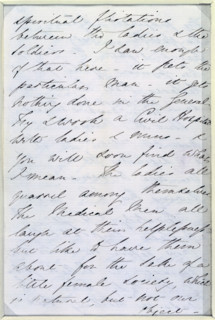 spiritual flirtations
between the ladies & the
soldiers I saw enough
of that here - it pets the
particular man - it gets
nothing done in the general.
Try 2 weeks a Civil Hospital
with ladies & nuns - &
You will soon find what
I mean. The ladies all
quarrel among themselves
The Medical Men all
laugh at their helplessness
but like to have them
about for the sake of a
little female society, which
is natural, but not our
object -